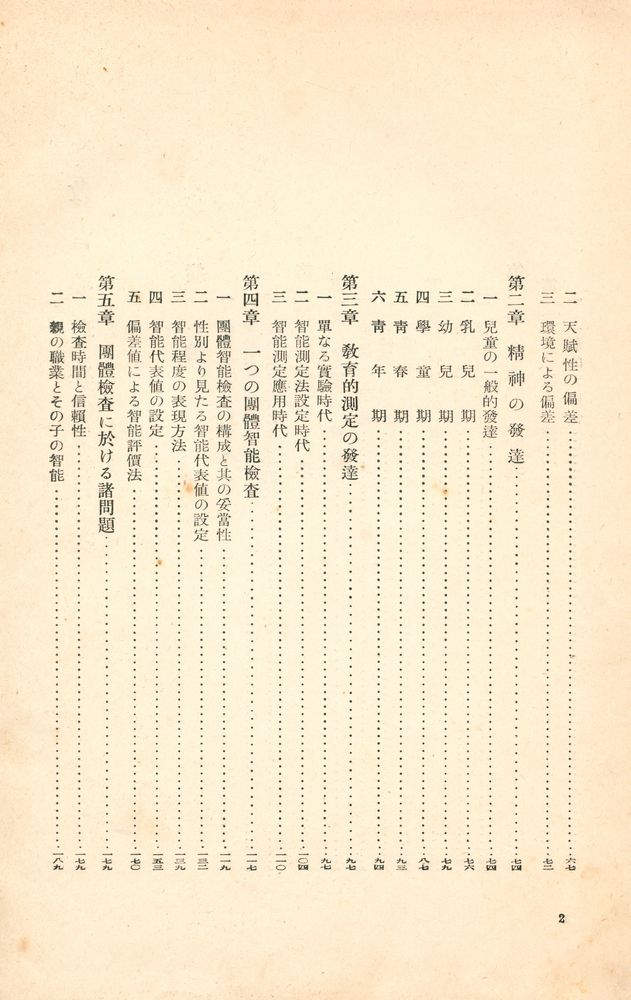 二　天賦性の偏差……六七
三　環境による偏差……七二
第二章　精神の發達……七四
一　兒童の一般的發達……七四
二　乳兒期……七六
三　幼兒期……七九
四　學童期……八七
五　靑春期……九三
六　靑年期……九四
第三章　敎育的測定の發達……九七
一　單なる實驗時代……九七
二　智能測定法設定時代……一〇四
三　智能測定應用時代……一一〇
第四章　一つの團體智能檢査……一一七
一　團體智能檢査の構成と其の妥當性……一一九
二　性別より見たる智能代表値の設定……一三二
三　智能程度の表現方法……一三九
四　智能代表値の設定……一五三
五　偏差値による智能評價法……一七〇
第五章　團體檢査に於ける諸問題……一七九
一　檢査時間と信賴性……一七九
二　親の職業とその子の智能……一八九
2